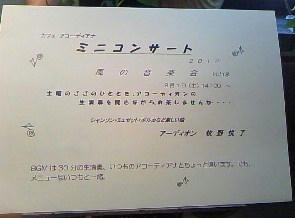 カフェ アコーディアナ
ミニコンサート
201
風の音楽会 Vol.18
9月1日(土) 14:00～
土曜の午後のひととき、アコーディオンの
生演奏を聞きながらお楽しみませんか・・・
シャンソン・ミュゼット・ポルカなど楽しい曲
アコーディオン 牧野悦了
BGMは30分の生演奏、いつものアコーディアナとちょっと違います。でも、
メニューはいつもと一緒。